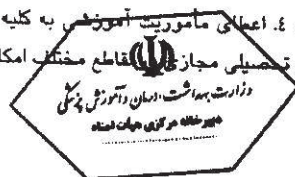 ٤. اعطای مأموریت آموزشی به کلیه
تحصیلی مجاز مقاطع مختلف امکا
وزارت بهداشت، درمان و آموزش پزشکی
دبیرخانه مرکزی هیأت امناء